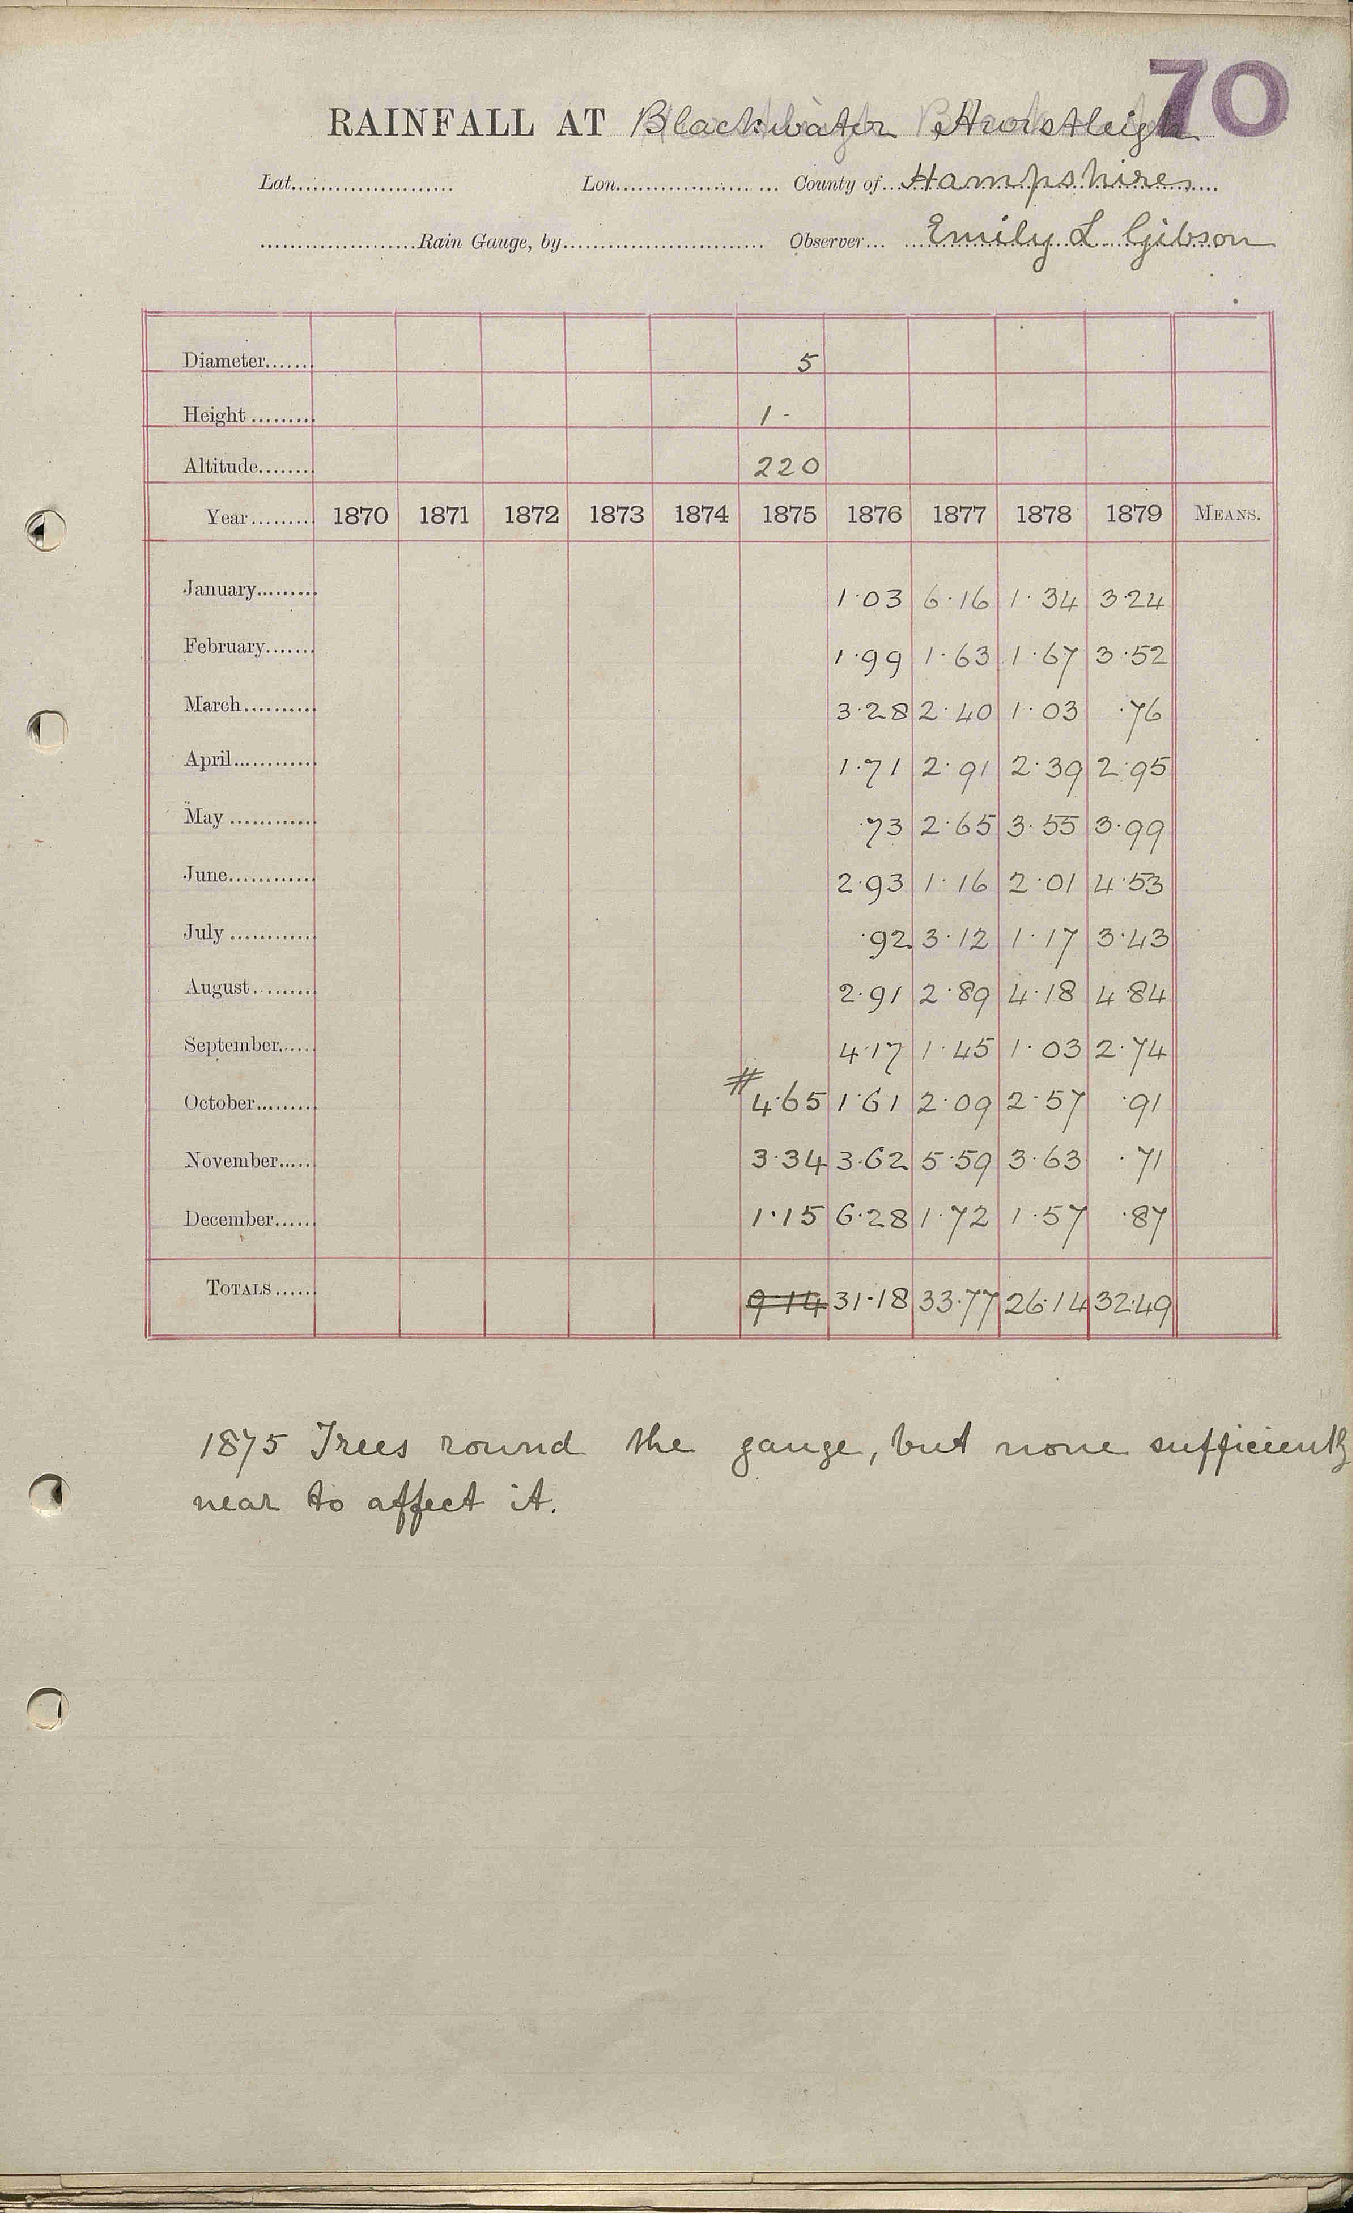 70
RAINFALL AT Blackwater Hurstleigh
Lat. Lon. County of Hampshire
Rain Gauge, by Observer Emily L Gibson
Diameter 5
Height 1·
Altitude 220
Year 1870 1871 1872 1873 1874 1875 1876 1877 1878 1879 MEANS.
January 1·03 6·16 1·34 3·24
February 1·99 1·63 1·67 3·52
March 3·28 2·40 1·03 ·76
April 1·71 2·91 2·39 2·95
May ·73 2·65 3·55 3·99
June 2·93 1·16 2·01 4·53
July ·92 3·12 1·17 3·43
August 2·91 2·89 4·18 4·84
September 4·17 1·45 1·03 2·74
October # 4·65 1·61 2·09 2·57 ·91
November 3·34 3·62 5·59 3·63 ·71
December 1·15 6·28 1·72 1·57 ·87
TOTALS 9·14 31·18 33·77 26·14 32·49
1875 Trees round the gauge, but none sufficiently
near to affect it.